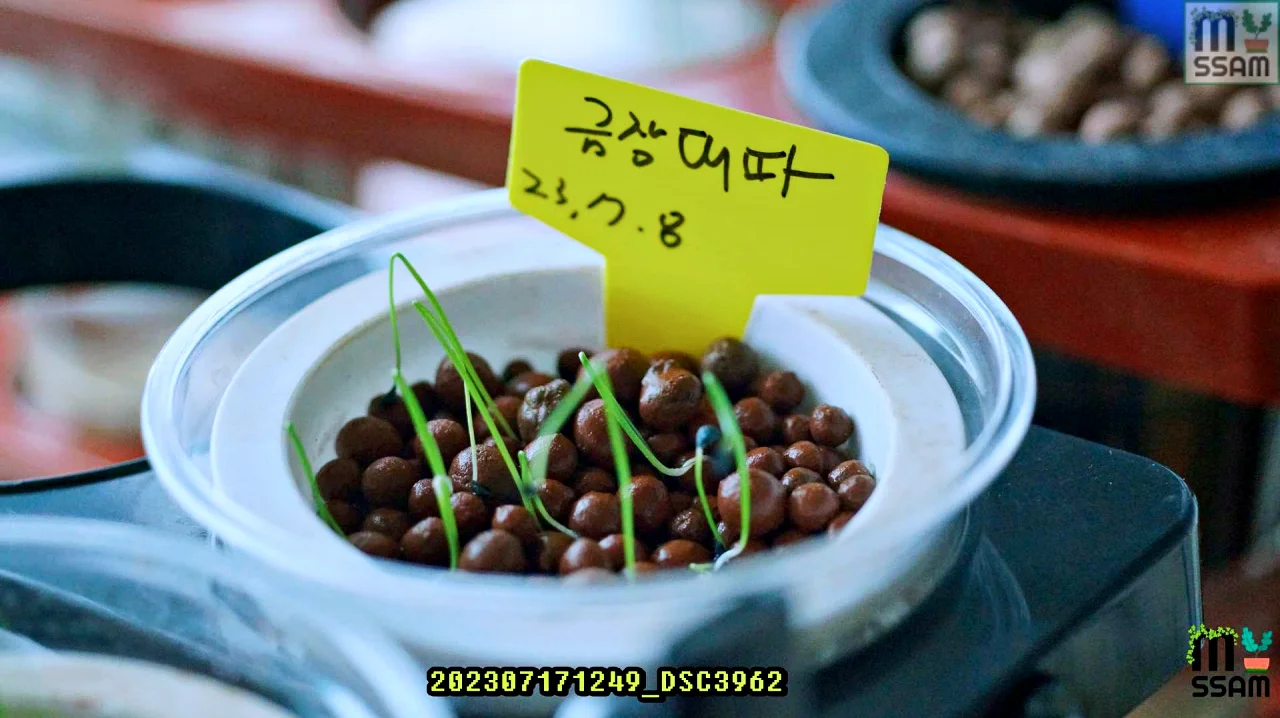 m
SSAM
금장대파
23.7.8
202307171249_DSC3962
m
SSAM